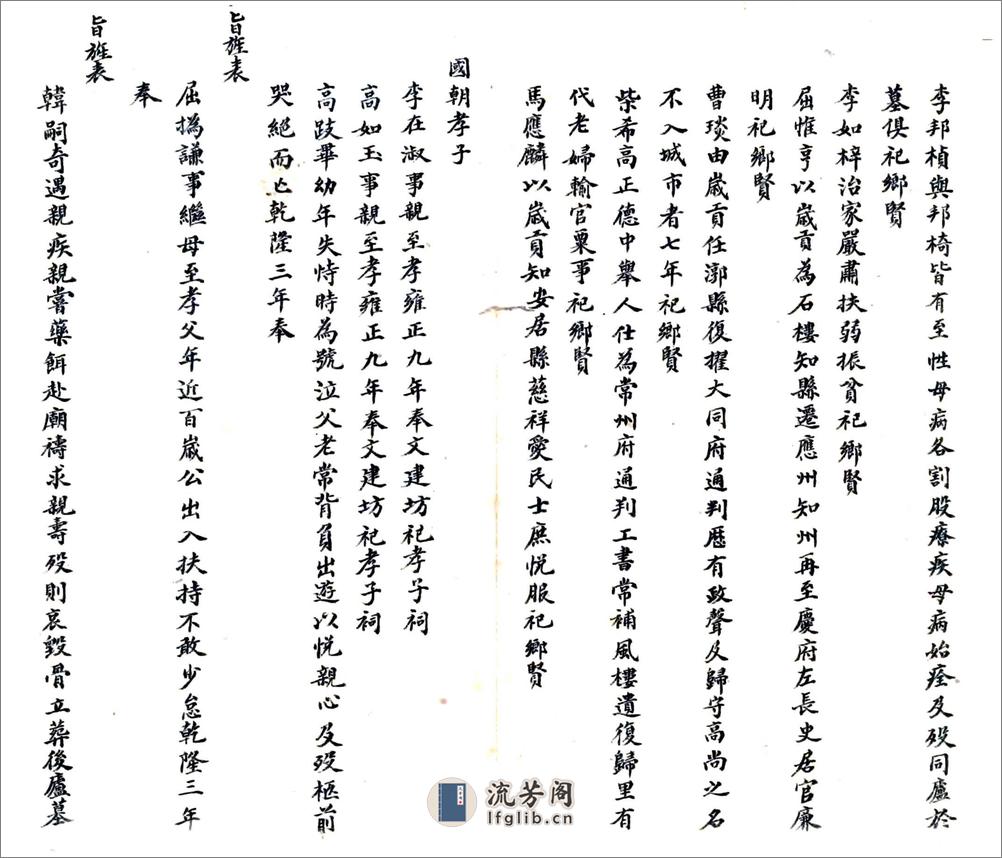 李邦楨與邦椅皆有至性母病各割股療疾母病始痊及歿同廬於
墓俱祀鄉賢
李如梓治家嚴肅扶弱振貧祀鄉賢
屈惟亨以歲貢為石樓知縣遷應州知州再至慶府左長史居官廉
明祀鄉賢
曹琰由歲貢任漷縣復擢大同府通判歷有政聲及歸守高尚之名
不入城市者七年祀鄉賢
柴希高正德中舉人仕為常州府通判工書常補風樓遺復歸里有
代老婦輸官粟事祀鄉賢
馬應麟以歲貢知安居縣慈祥愛民士庶悅服祀鄉賢
國朝孝子
李在淑事親至孝雍正九年奉文建坊祀孝子祠
高如玉事親至孝雍正九年奉文建坊祀孝子祠
高跂畢幼年失恃時為號泣父老常背負出遊以悅親心及歿柩前
哭絕而亡乾隆三年奉
旨旌表
屈撝謙事繼母至孝父年近百歲公出入扶持不敢少怠乾隆三年
奉
旨旌表
韓嗣奇遇親疾親嘗藥餌赴廟禱求親壽歿則哀毀骨立葬後廬墓
流芳阁
lfglib.cn